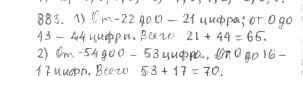 883. 1) От -22 до 0 - 21 цифра; от 0 до
43 - 44 цифры. Всего 21 + 44 = 65.
2) От -54 до 0 - 53 цифра. От 0 до 16 -
17 цифр. Всего 53 + 17 = 70.